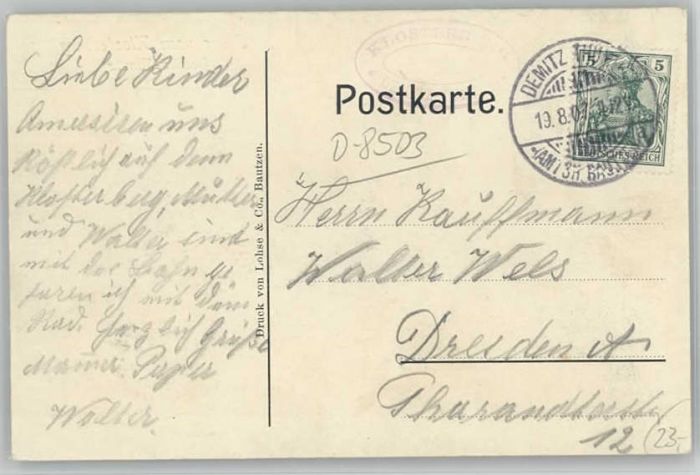 Liebe Kinder
Amuesiren uns
Köstlich auf dem
Klosterberg, Mutter
und Walter sind
mit der Bahn ge
faren ich mit dem
Rad. Herzlich Grüße
Mamma Papa
Walter.
Druck von Lohse & Co., Bautzen.
KLOSTERB
Postkarte.
D-8503
DEMITZ THU
19.8.09
(AMTSH. BAU
5 5
DEUTSCHES REICH
Herrn Kauffmann
Walter Wels
Dresden A
Tharandterstr
12
23-